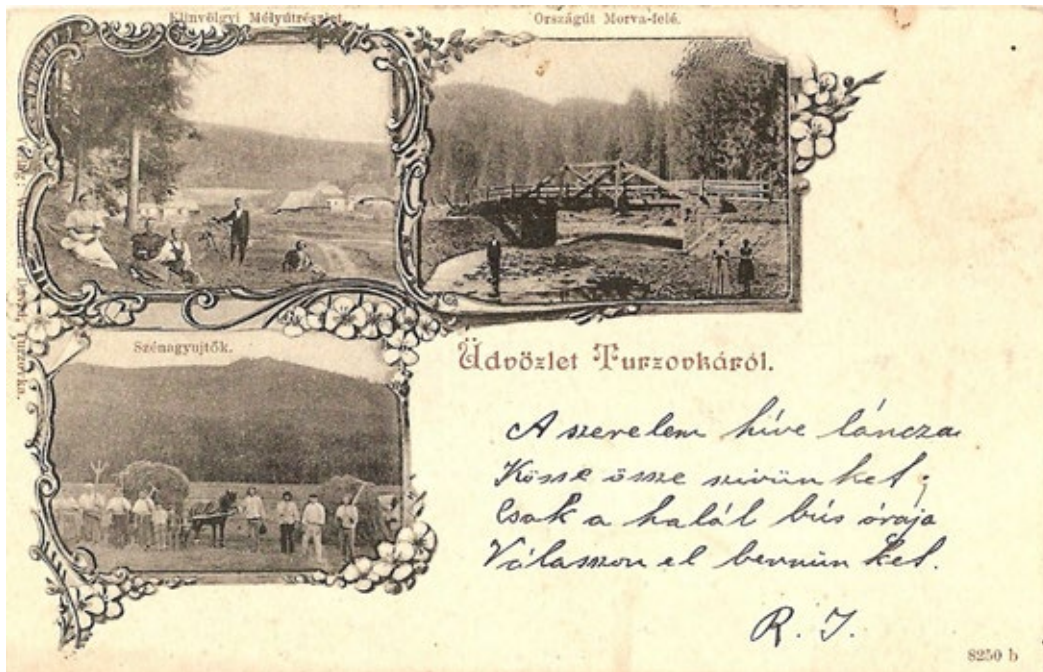 Klinvölgyi Mélyútrészlet.
Országút Morva-felé.
Szénagyujtők.
Turzovka.
Üdvözlet Turzovkáról.
A szerelem híve láncza
Kösse össze szivünket;
Csak a halál bús órája
Válasszon el bennünket.
R. I.
8250 b